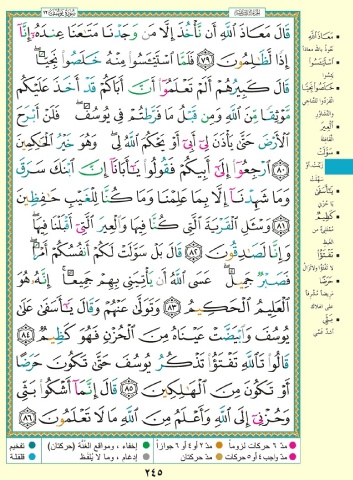 سورة يوسف ١٢
الجزء الثالث عشر
قَالَ مَعَاذَ ٱللَّهِ أَن نَّأْخُذَ إِلَّا مَن وَجَدْنَا مَتَٰعَنَا عِندَهُۥٓ إِنَّآ
إِذًا لَّظَٰلِمُونَ ٧٩ فَلَمَّا ٱسْتَيْـَٔسُوا۟ مِنْهُ خَلَصُوا۟ نَجِيًّا ۖ
قَالَ كَبِيرُهُمْ أَلَمْ تَعْلَمُوٓا۟ أَنَّ أَبَاكُمْ قَدْ أَخَذَ عَلَيْكُم
مَّوْثِقًا مِّنَ ٱللَّهِ وَمِن قَبْلُ مَا فَرَّطتُمْ فِى يُوسُفَ ۖ فَلَنْ أَبْرَحَ
ٱلْأَرْضَ حَتَّىٰ يَأْذَنَ لِىٓ أَبِىٓ أَوْ يَحْكُمَ ٱللَّهُ لِى ۖ وَهُوَ خَيْرُ ٱلْحَٰكِمِينَ
٨٠ ٱرْجِعُوٓا۟ إِلَىٰٓ أَبِيكُمْ فَقُولُوا۟ يَٰٓأَبَانَآ إِنَّ ٱبْنَكَ سَرَقَ
وَمَا شَهِدْنَآ إِلَّا بِمَا عَلِمْنَا وَمَا كُنَّا لِلْغَيْبِ حَٰفِظِينَ
٨١ وَسْـَٔلِ ٱلْقَرْيَةَ ٱلَّتِى كُنَّا فِيهَا وَٱلْعِيرَ ٱلَّتِىٓ أَقْبَلْنَا فِيهَا ۖ
وَإِنَّا لَصَٰدِقُونَ ٨٢ قَالَ بَلْ سَوَّلَتْ لَكُمْ أَنفُسُكُمْ أَمْرًا ۖ
فَصَبْرٌ جَمِيلٌ ۖ عَسَى ٱللَّهُ أَن يَأْتِيَنِى بِهِمْ جَمِيعًا ۚ إِنَّهُۥ هُوَ
ٱلْعَلِيمُ ٱلْحَكِيمُ ٨٣ وَتَوَلَّىٰ عَنْهُمْ وَقَالَ يَٰٓأَسَفَىٰ عَلَىٰ
يُوسُفَ وَٱبْيَضَّتْ عَيْنَاهُ مِنَ ٱلْحُزْنِ فَهُوَ كَظِيمٌ ٨٤
قَالُوا۟ تَٱللَّهِ تَفْتَؤُا۟ تَذْكُرُ يُوسُفَ حَتَّىٰ تَكُونَ حَرَضًا
أَوْ تَكُونَ مِنَ ٱلْهَٰلِكِينَ ٨٥ قَالَ إِنَّمَآ أَشْكُوا۟ بَثِّى
وَحُزْنِىٓ إِلَى ٱللَّهِ وَأَعْلَمُ مِنَ ٱللَّهِ مَا لَا تَعْلَمُونَ ٨٦
مَعَاذَ اللّهِ
نعوذ بالله معاذا
اسْتَيْأَسُوا
يئسوا
خَلَصُوا نَجِيًّا
انفردوا للتناجي
والتشاور
الْعِيرَ
القافلة
سَوَّلَتْ
زينت أو
سهلت
يَا أَسَفَى
يا حزني
كَظِيمٌ
ممتلئ من
الغيظ
تَفْتَأُ
لا تفتأ ولا تزال
حَرَضًا
مريضا مشرفا
على الهلاك
بَثِّي
أشد غمي
مدّ ٦ حركات لزوماً
مدّ ٢ أو ٤ أو ٦ جوازاً
إخفاء، ومواقع الغُنَّة (حركتان)
تفخيم
مدّ واجب ٤ أو ٥ حركات
مدّ حركتان
إدغام، وما لا يُلفَظ
قلقلة
٢٤٥